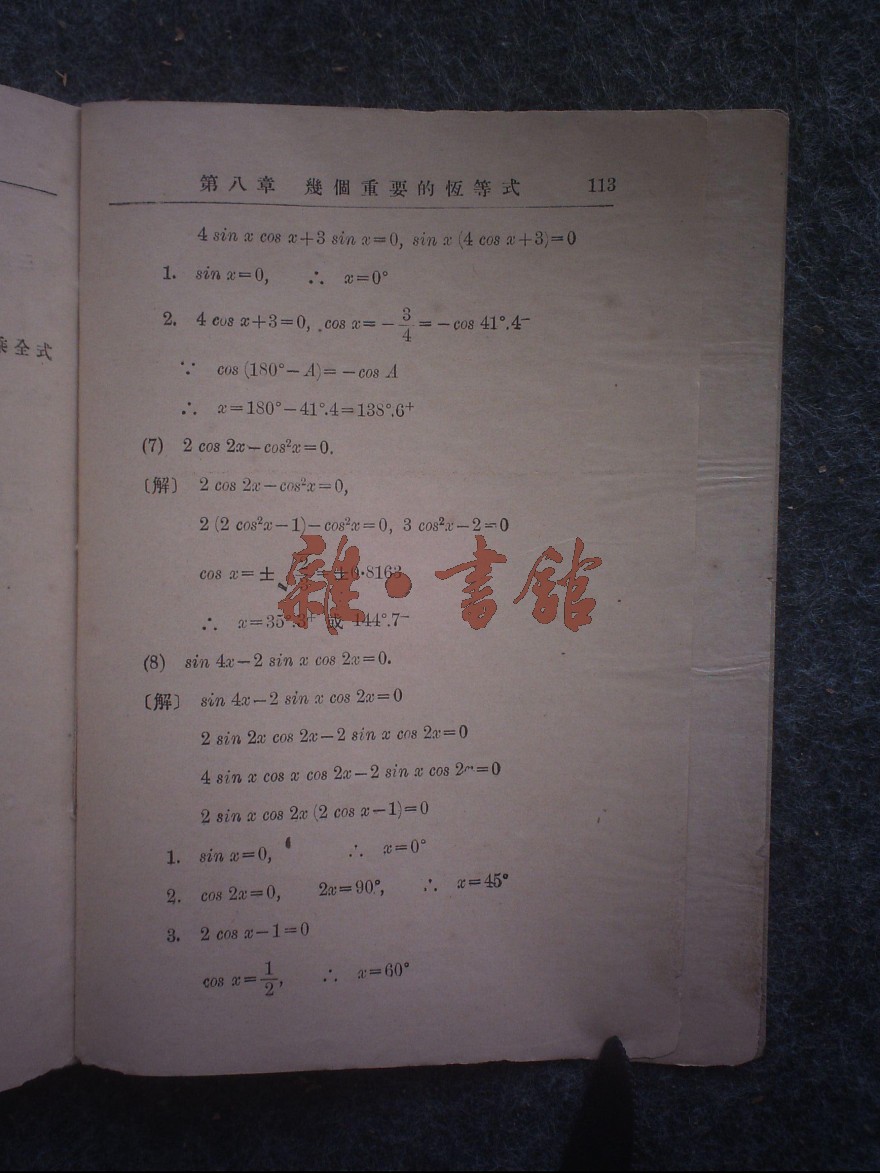 第八章 幾個重要的恆等式 113
4 sin x cos x+3 sin x=0, sin x (4 cos x+3)=0
1. sin x=0, ∴ x=0°
2. 4 cos x+3=0, cos x=-3/4=-cos 41°.4⁻
∵ cos (180°-A)=-cos A
∴ x=180°-41°.4=138°.6⁺
(7) 2 cos 2x-cos²x=0.
〔解〕 2 cos 2x-cos²x=0,
2 (2 cos²x-1)-cos²x=0, 3 cos²x-2=0
cos x=± =±0·8163
∴ x=35°.3⁺ 或 144°.7⁻
(8) sin 4x-2 sin x cos 2x=0.
〔解〕 sin 4x-2 sin x cos 2x=0
2 sin 2x cos 2x-2 sin x cos 2x=0
4 sin x cos x cos 2x-2 sin x cos 2x=0
2 sin x cos 2x (2 cos x-1)=0
1. sin x=0, ∴ x=0°
2. cos 2x=0, 2x=90°, ∴ x=45°
3. 2 cos x-1=0
cos x=1/2, ∴ x=60°
全式
雜·書館